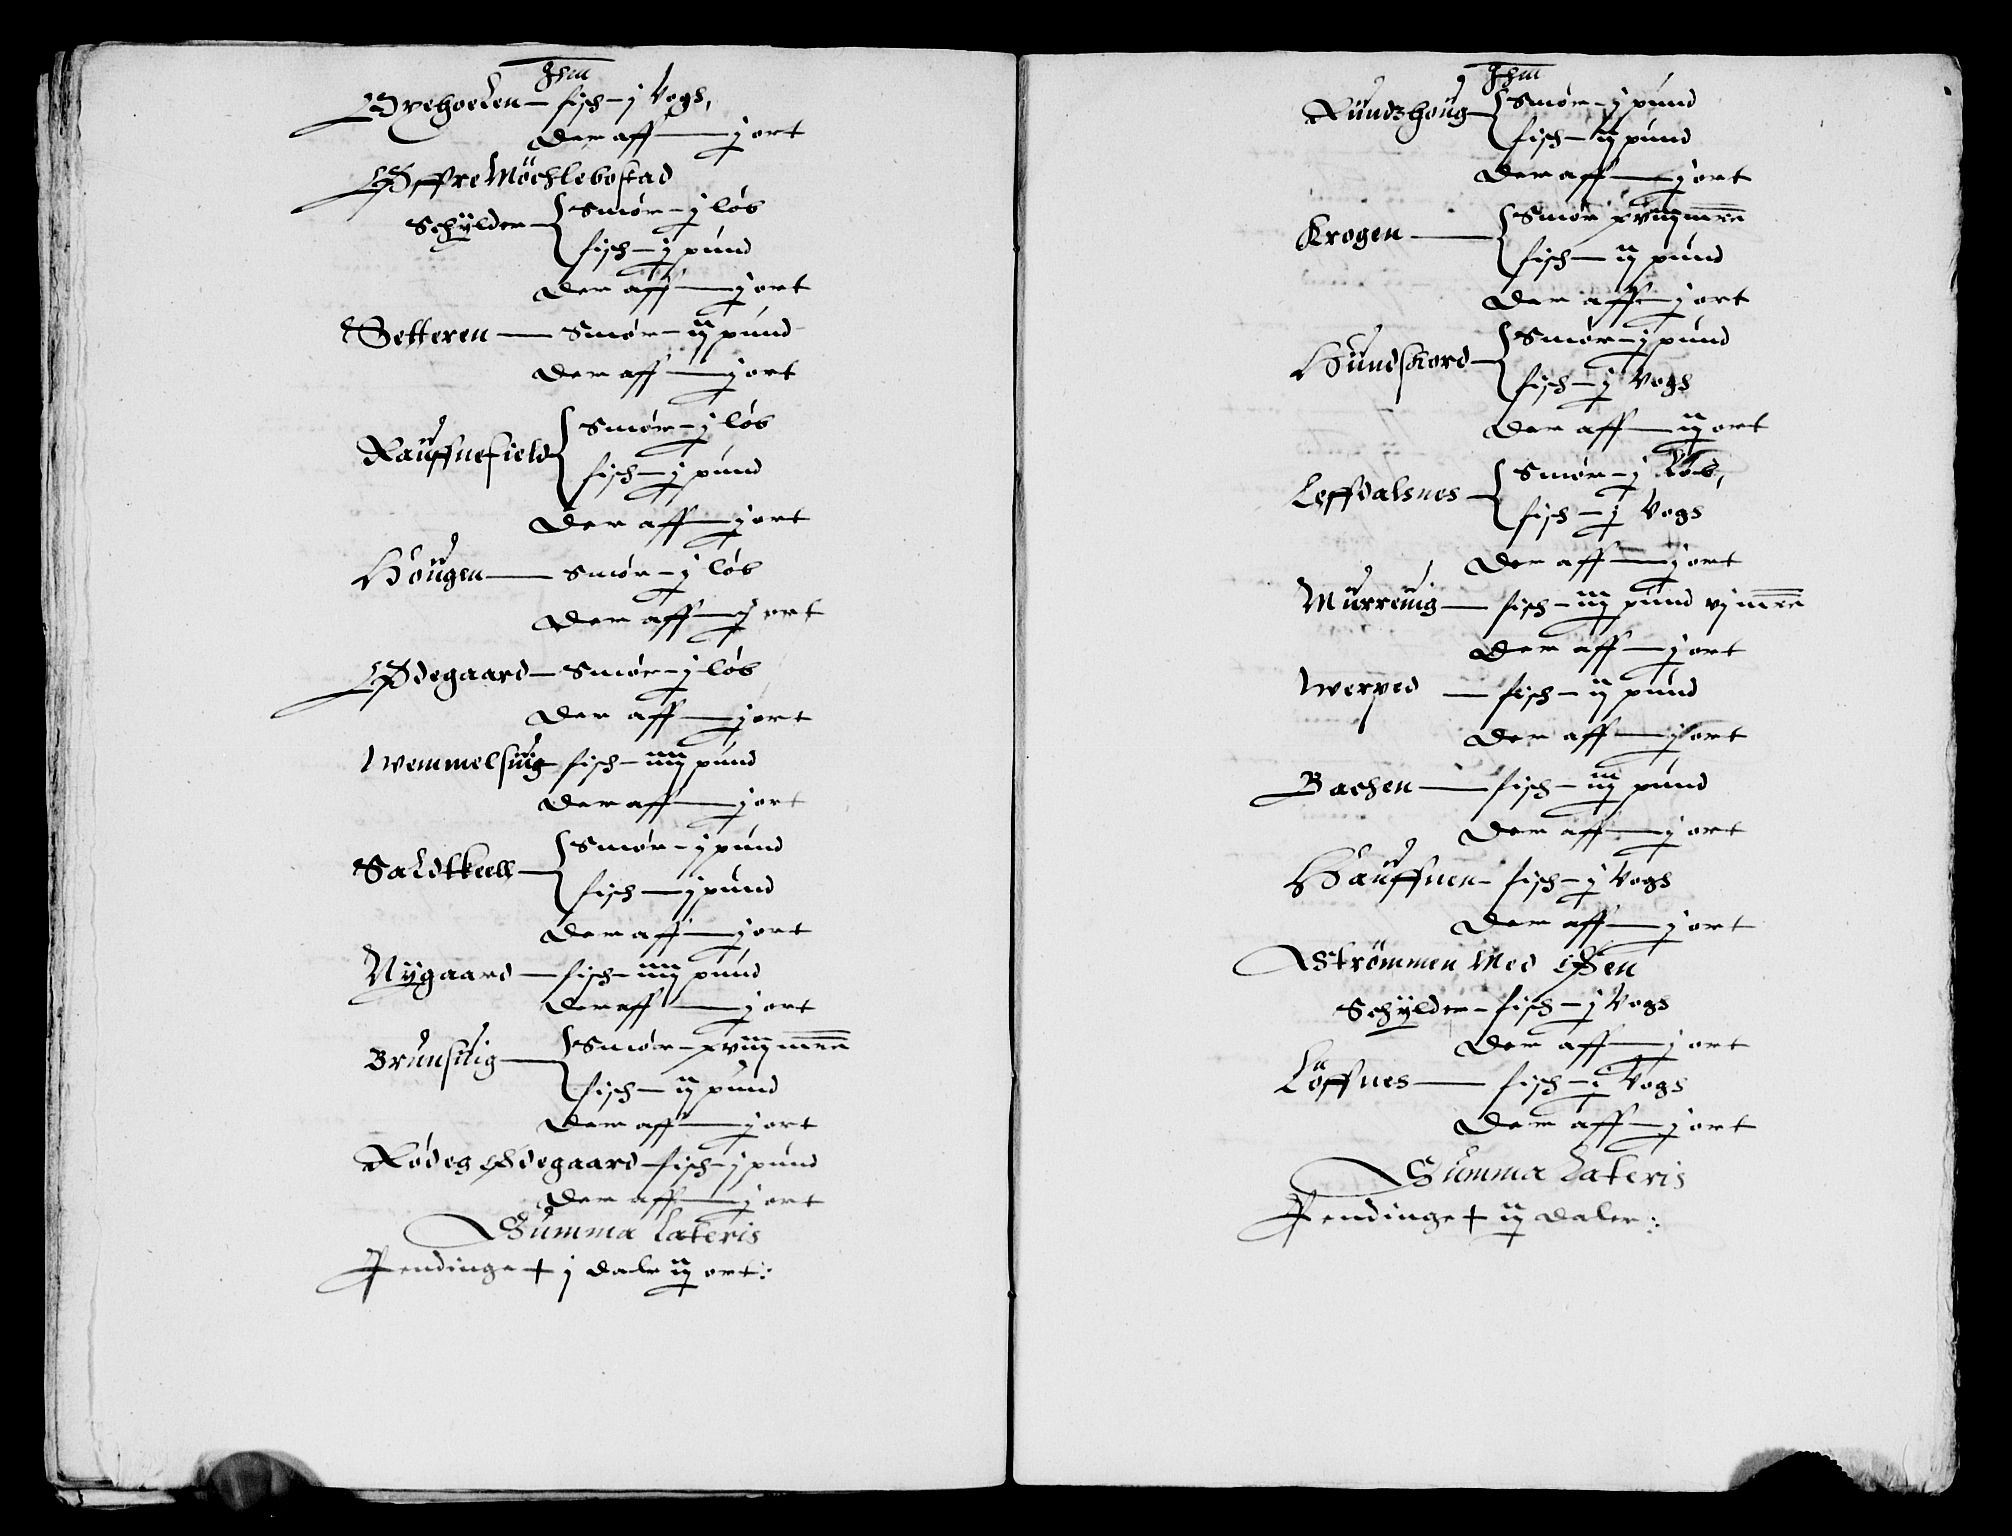 Jhm
Grehoelen — fisch — j Vogs,
Der aff — j ort
Øffre Möchlebostad
Schÿlder — Smør — j løb
fisch — j pund
Der aff — j ort
Setteren — Smør — ij pund
Der aff — j ort
Rauffnefield Smør — j løb
fisch — j pund
Der aff — j ort
Hougen — Smør — j løb
Der aff — j ort
Ødegaard — Smør — j løb
Der aff — j ort
Wemmelsuig fisch — iiij pund
Der aff — j ort
Saldtkiell — Smør — j pund
fisch — j pund
Der aff — j ort
Nÿgaard — fisch — iiij pund
Der aff — j ort
Brunsuig — Smør — xviij mrc
fisch — ij pund
Der aff — j ort
Rød eg Ødegaard — fisch — j pund
Der aff — j ort
Summa Lateris
Pendinge + j dalr ij ort:
Jhm
Rundzhoug — Smør — j pund
fisch — ij pund
Der aff — j ort
Krogen — Smør xviij mrc
fisch — ij pund
Der aff — j ort
Hundskord — Smør — j pund
fisch — j Vogs
Der aff — ij ort
Leffdalsnes — Smør — j Løb,
fisch — j Vogs
Der aff — j ort
Murreuig — fisch — iij pund vj mrc
Der aff — j ort
Werped — fisch — ij pund
Der aff — j ort
Bachen — fisch — iij pund
Der aff — j ort
Hauffnen — fisch — j Vogs
Der aff — j ort
Strömmen Med Øen
Schÿlder — fisch — j Vogs
Der aff — j ort
Löffnes — fisch — j Vogs
Der aff — j ort
Summa Lateris
Pendinge + ij daler: